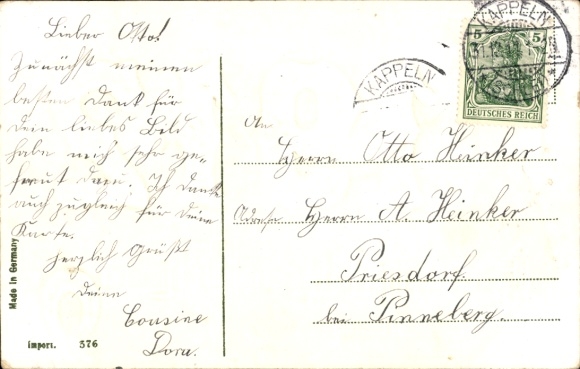 Lieber Otto!
Zunächst meinen
besten Dank für
dein liebes Bild
habe mich sehr ge-
freut darü. Ich danke
auch zugleich für deine
Karte.
herzlich Grüßt
Deine
Cousine
Dora.
Made in Germany
Import. 376
KAPPELN
KAPPELN
5 5
DEUTSCHES REICH
An
Herrn Otto Heinker
Adresse Herrn A. Heinker
Priesdorf.
bei Pinneberg.